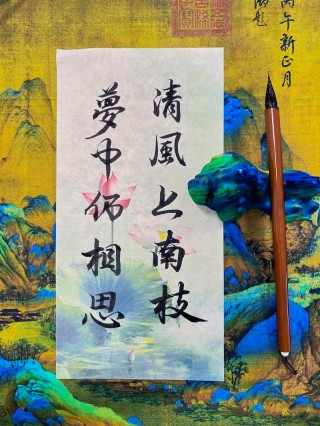 清風上南枝
夢中仍相思
丙午新正月